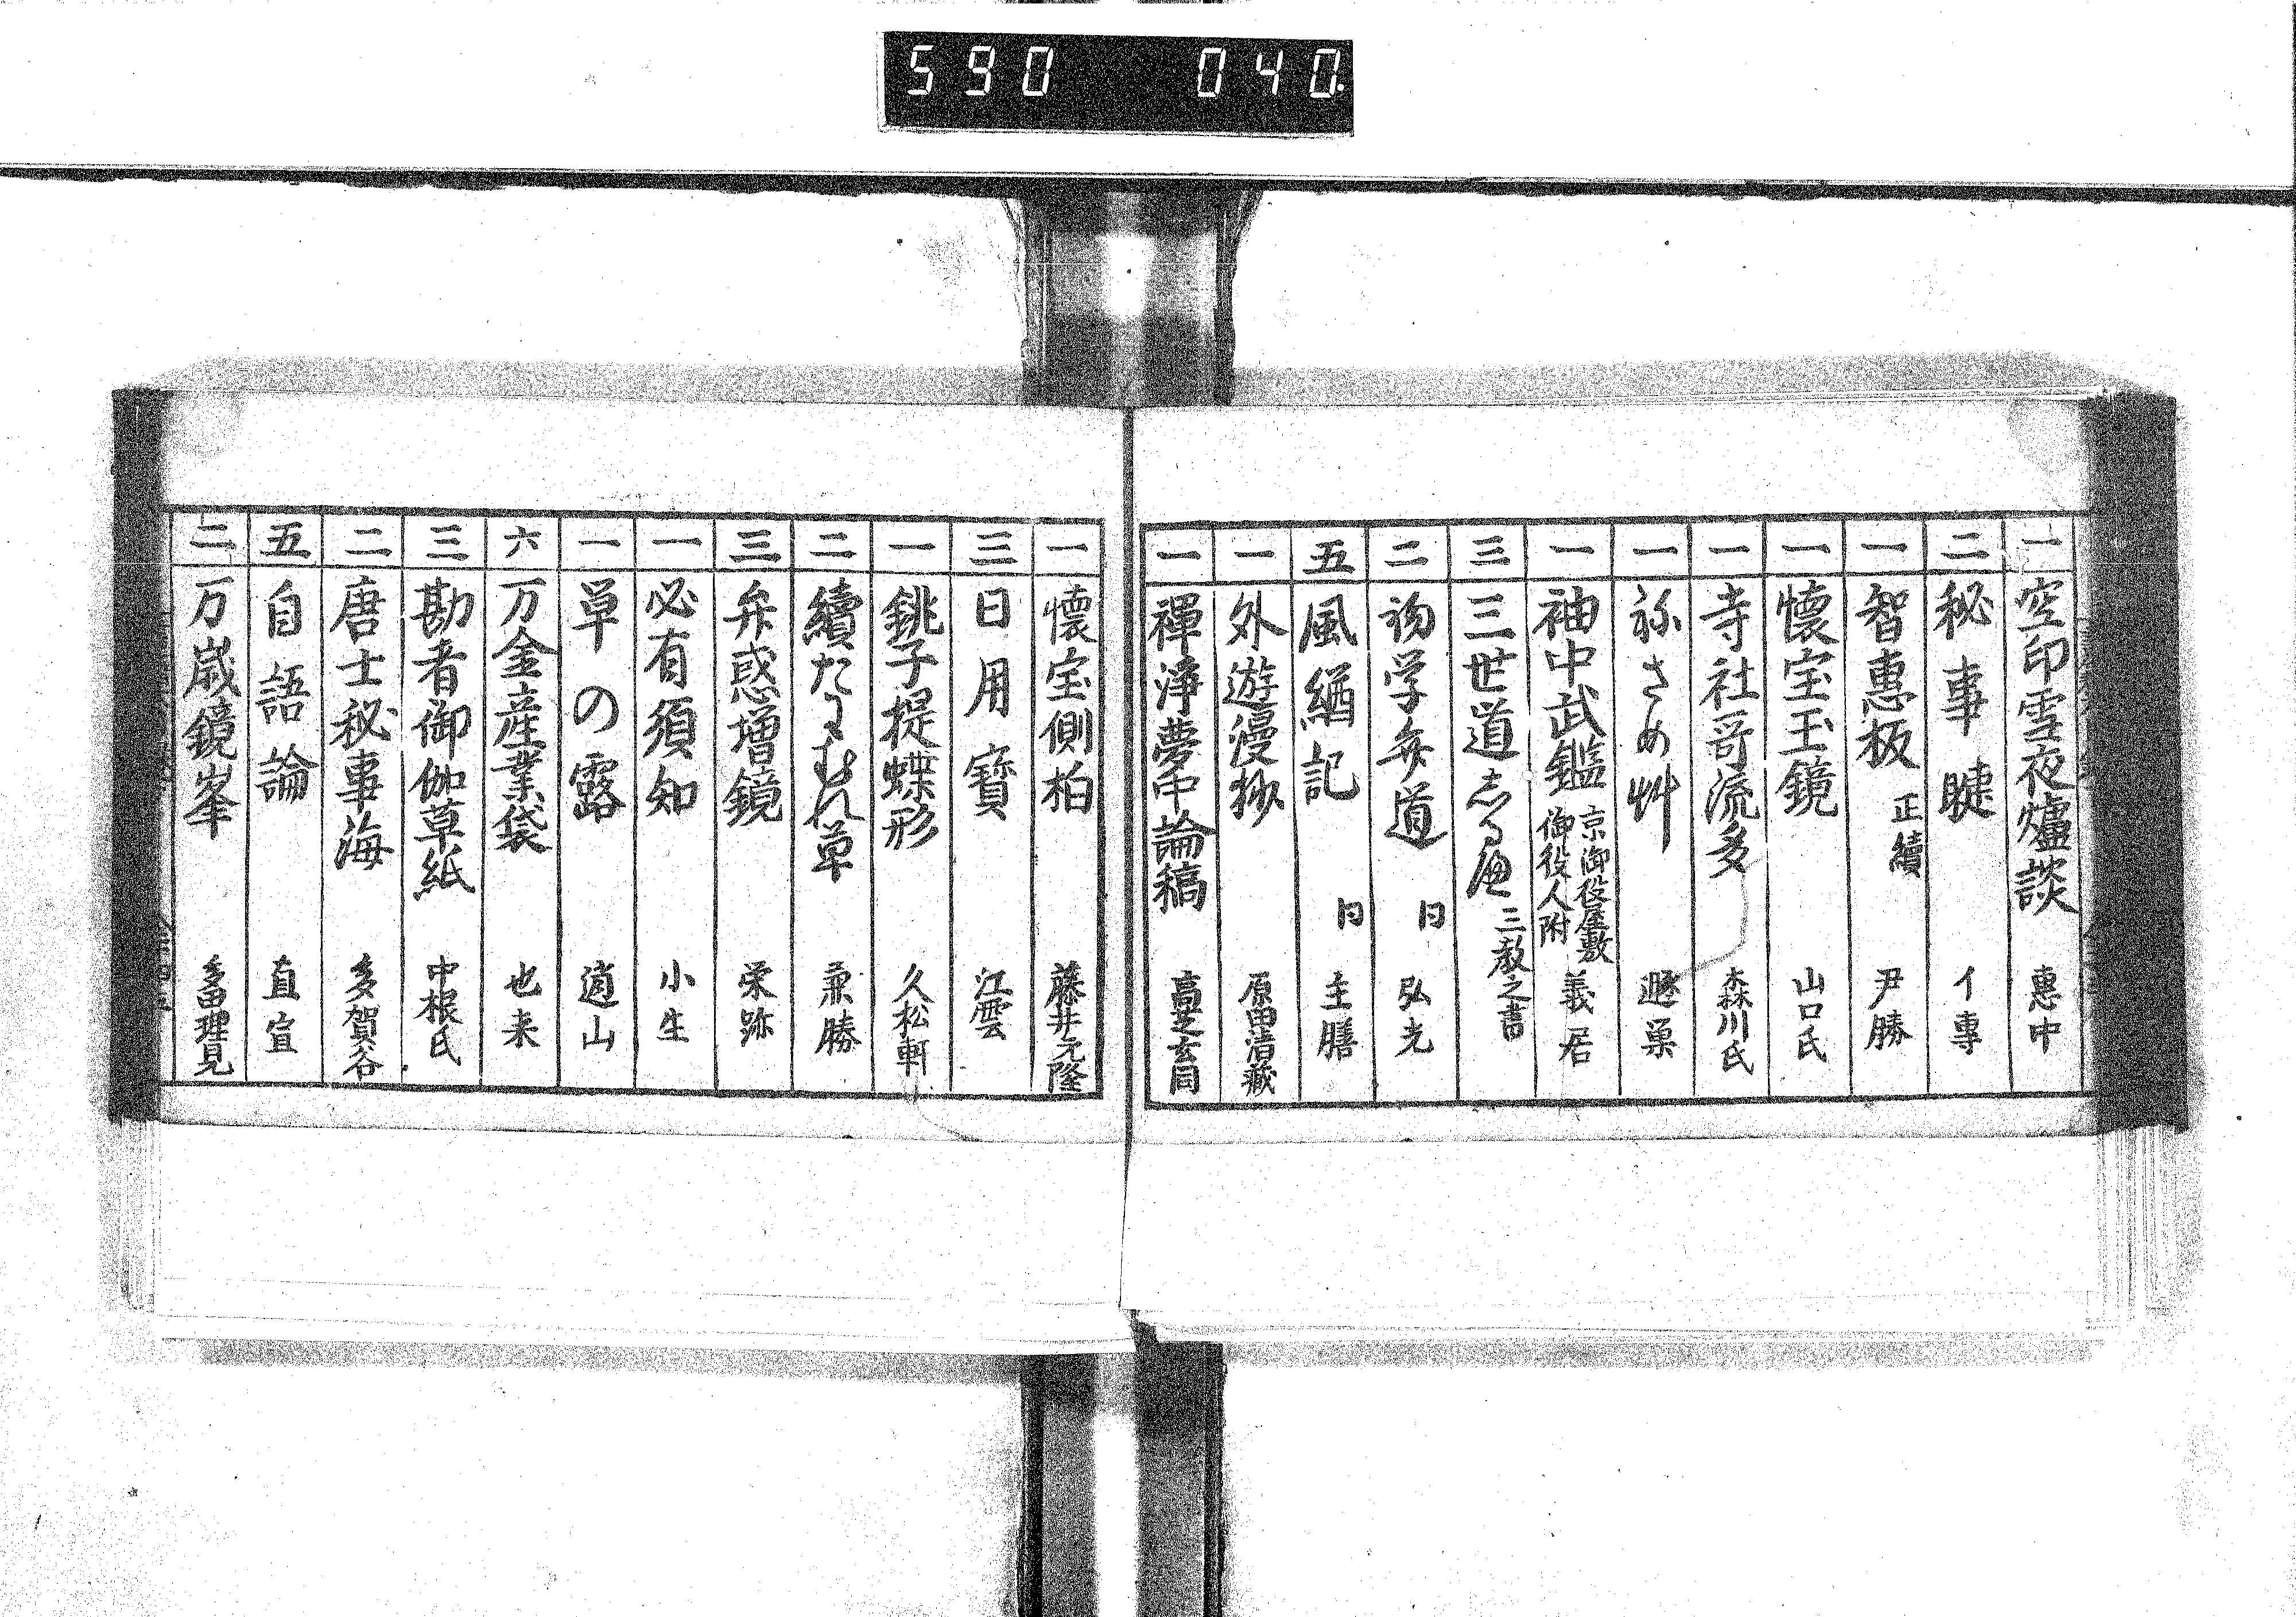 590 040
一 空印雪夜爐談 惠中
二 秘事睫 イ專
一 智惠板 正續 尹勝
一 懷宝玉鏡 山口氏
一 寺社哥流多 森川氏
一 祢さめ艸 巣
一 袖中武鑑 京御役屋敷 御役人附 義居
三 三世道志る邊 三教之書
二 初学弁道 同 弘光
五 風緇記 同 主膳
一 外遊漫抄 原田清藏
一 禪淨夢中論稿 高芝玄同
一 懷宝側柏 藤井元隆
三 日用寶 江雲
一 銚子提蝶形 久松軒
二 續たはむれ草 兼勝
三 弁惑増鏡 栄跡
一 必有須知 小生
一 草の露 逍山
六 万金産業袋 也来
三 勘者御伽草紙 中根氏
二 唐士秘事海 多賀谷
五 自語論 直宣
二 万歳鏡峯 多田理見